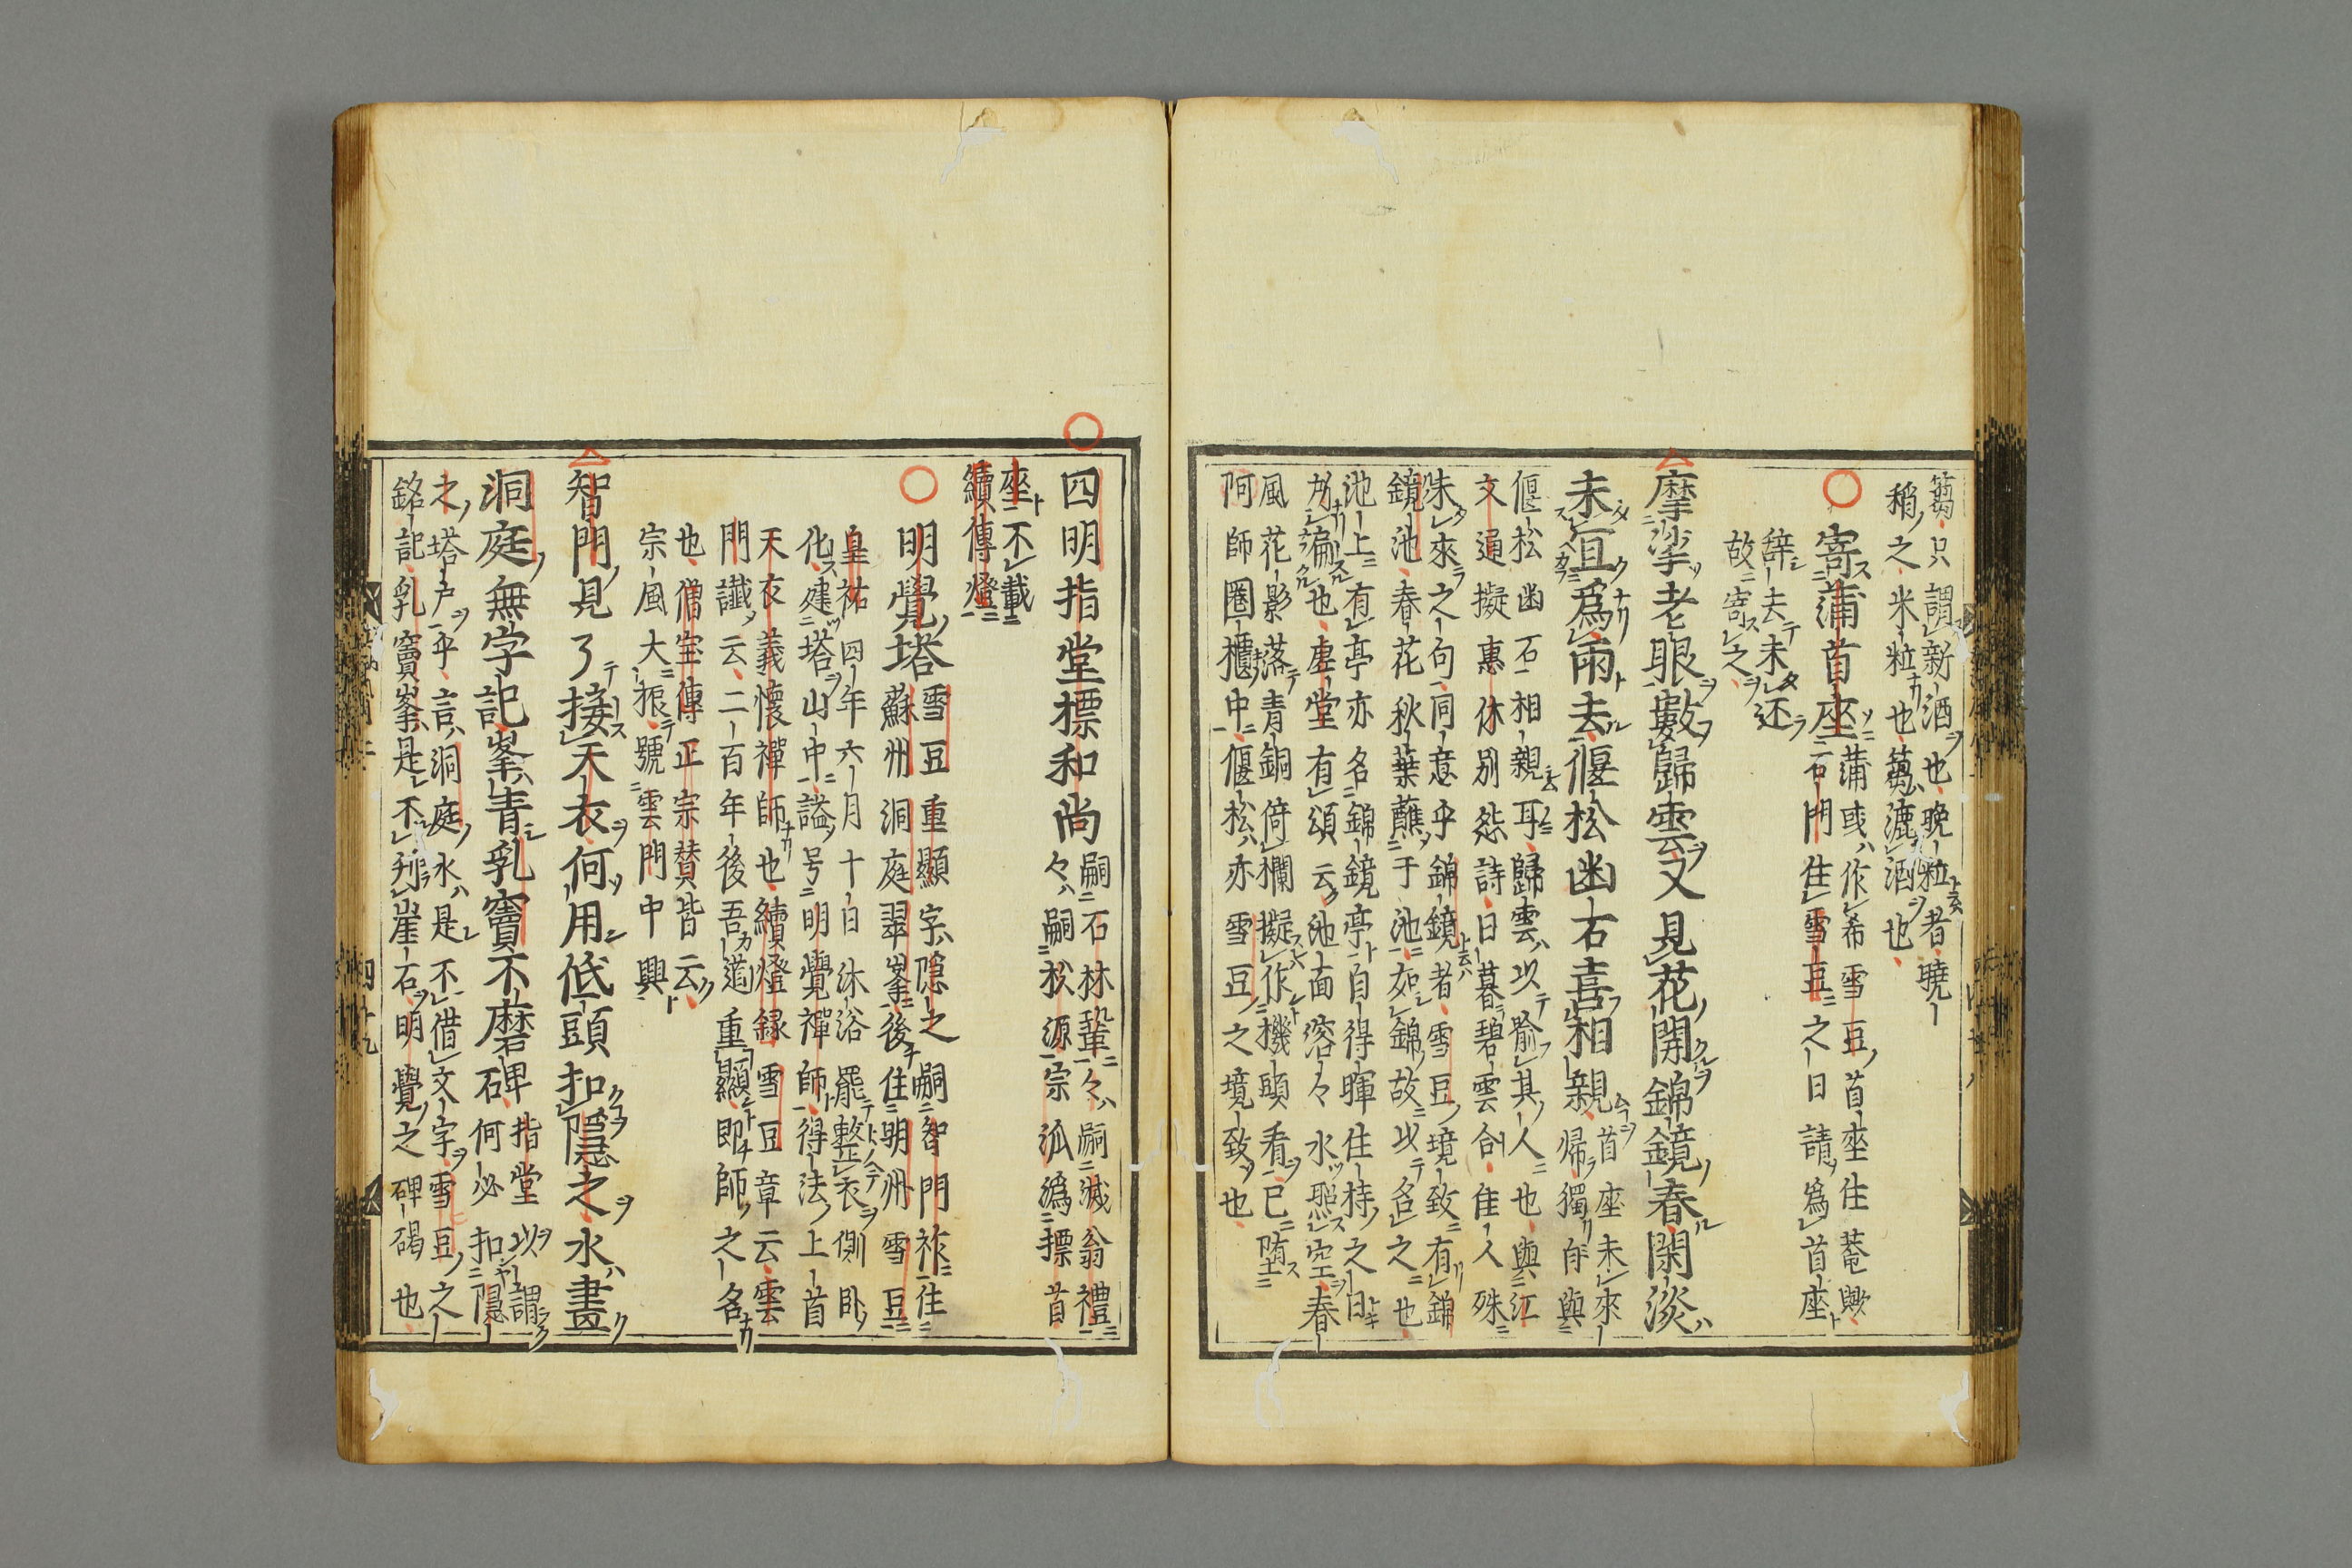 蒭只謂新酒也晚粒者曉
稍之米粒也蒭漉酒也
寄蒲首座
蒲或作希雪豆首座住菴歟
石門住雪豆之日請爲首座
辞去未还
故寄之
摩挲老眼數歸雲又見花開錦鏡春閑淡
未宜爲雨去偃松幽石喜相親
首座未來
帰獨自與
偃松幽石相親耳歸雲以喻其人也與江
文通擬惠休別怨詩日暮碧雲合佳人殊
未來之句同意乎錦鏡者雪豆境致有錦
鏡池春花秋葉蘸于池如錦故以名之也
池上有亭亦名錦鏡亭自得暉住持之日
虚堂有頌云池面溶々水照空春
風花影落青銅倚欄擬作機頭看已堕
阿師圈櫃中偃松亦雪豆之境致也
四明指堂標和尚
嗣石林鞏々嗣滅翁禮
々嗣松源宗派爲標首
座不載
續傳燈
明覺塔
雪豆重顯字隱之嗣智門祚住
蘇州洞庭翠峯後住明州雪豆
皇祐四年六月十日沐浴罷整衣側臥
化建塔山中謚号明覺禪師得法上首
天衣義懷禪師也續燈録雪豆章云雲
門讖云二百年後吾道重顯即師之名
也僧宝傳正宗賛皆云
宗風大振號雲門中興
智門見了接天衣何用低頭扣隱之水畫
洞庭無字記峯青乳竇不磨碑
指堂以謂
何必扣隱
之塔户乎言洞庭水是不借文字雪豆之
銘記乳竇峯是不刋崖石明覺之碑碣也
四十九